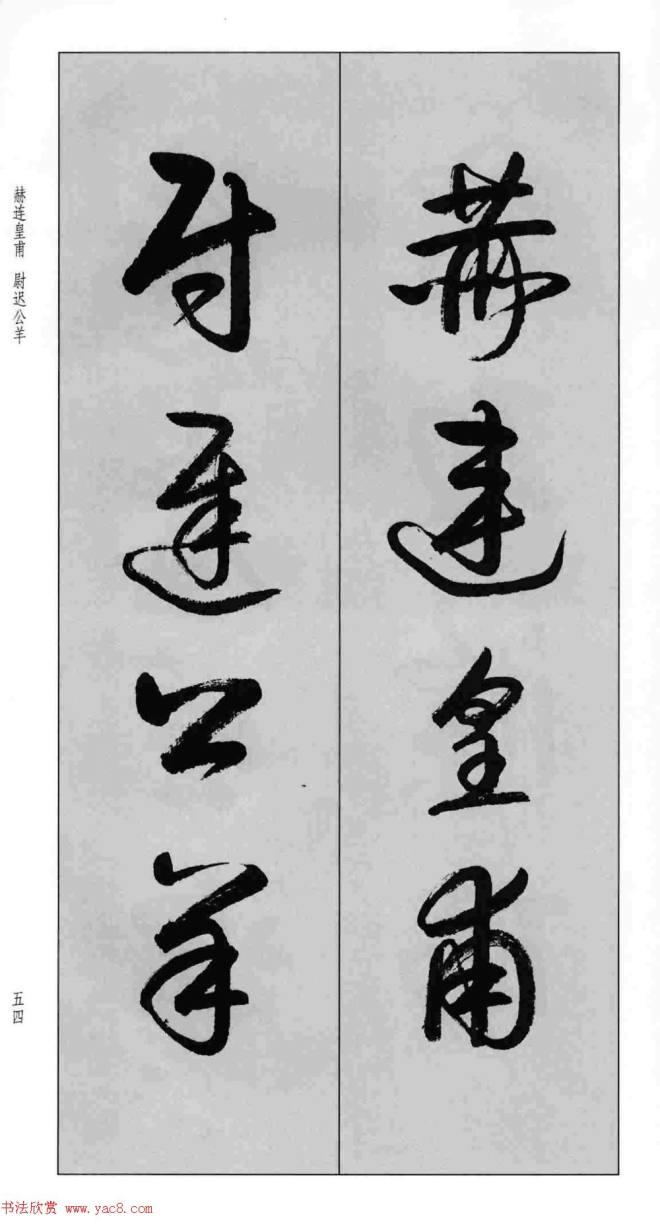 赫連皇甫
尉遲公羊
赫连皇甫 尉迟公羊
五四
书法欣赏 www.yac8.com